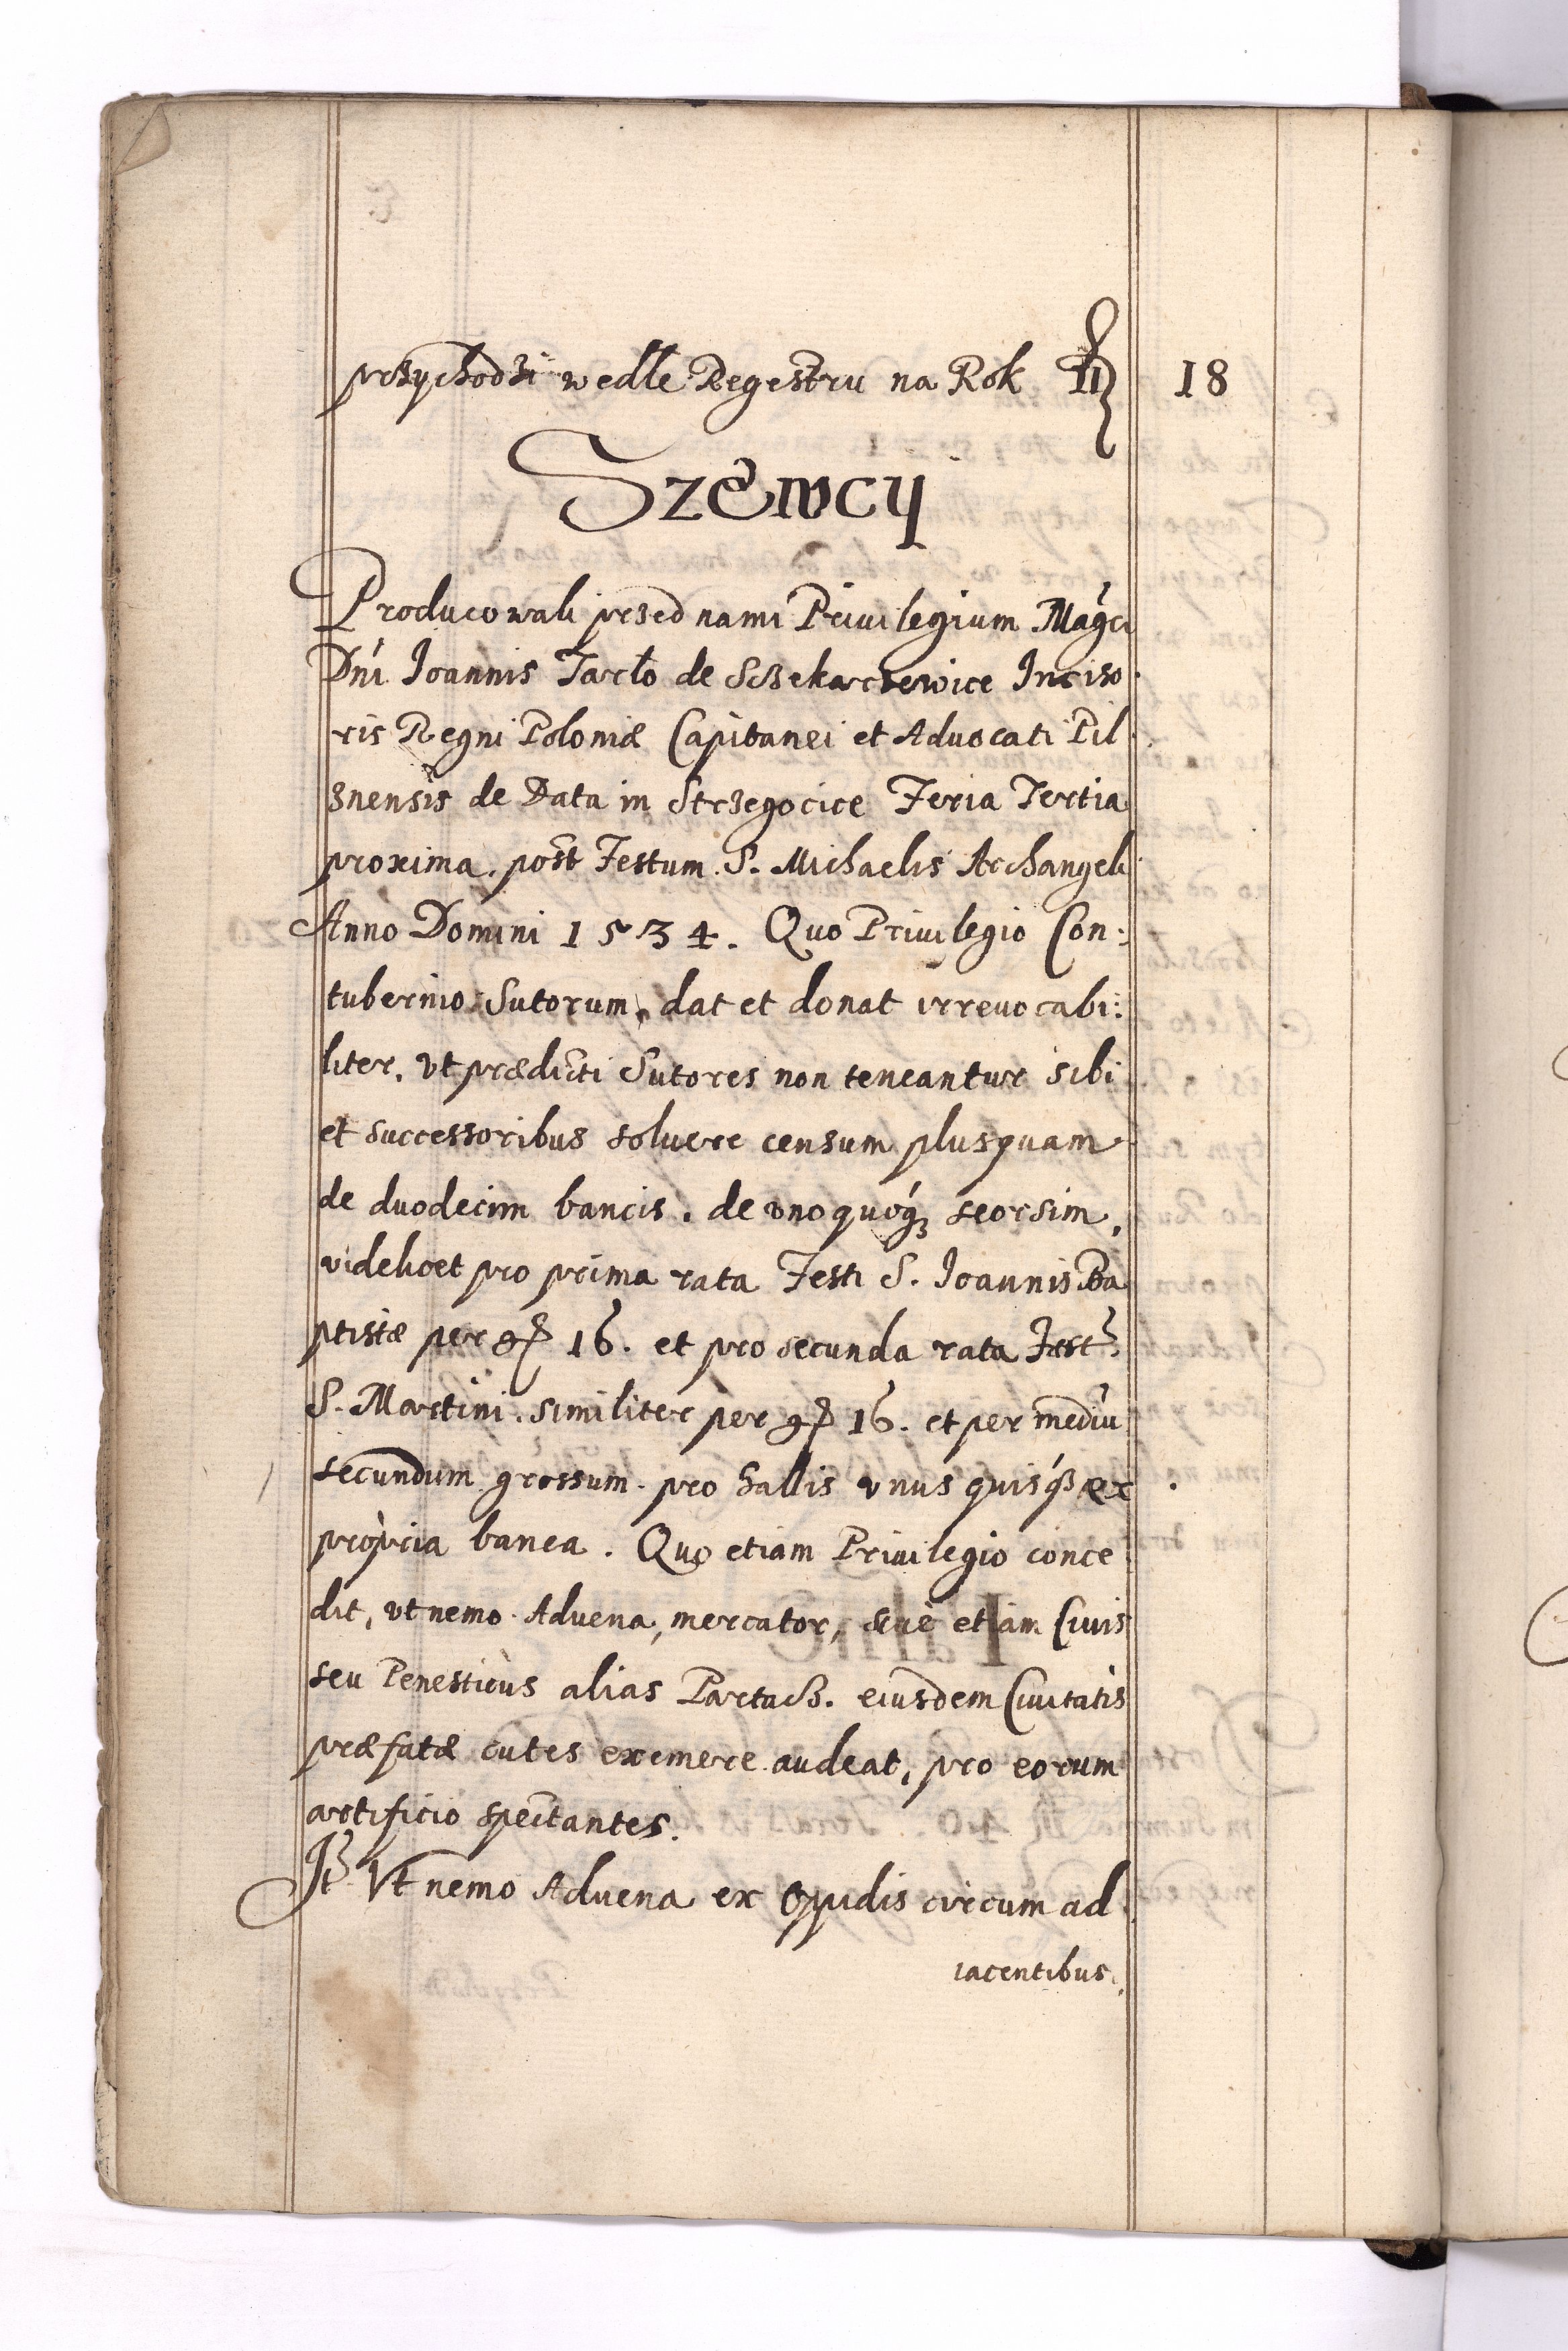 przychodzi wedle Regestru na Rok fl 18
Szewcy
Producowali przed nami Priuilegium Magci
Dni Ioannis Tarło de Sczekarzewice Inciso
ris Regni Poloniæ Capitanei et Aduocati Pil
znensis de Data in Strzegocice Feria Tertia
proxima post Festum S. Michaelis Archangeli
Anno Domini 1534. Quo Priuilegio Con:
tubernio Sutorum, dat et donat irreuocabi:
liter, vt prædicti Sutores non teneantur sibi
et successoribus soluere censum plusquam
de duodecim bancis. de vnoquoq3 seorsim,
videlicet pro prima rata Festi S. Ioannis Ba
ptistæ per gr 16. et pro secunda rata Festi
S. Martini. similiter per gr 16. et per mediu
secundum grossum. pro hallis vnus quisq3 ex
propria banca. Quo etiam Priuilegio conce
dit, vt nemo Aduena, mercator, siue etiam Ciuis
seu Penesticus alias Partacz. eiusdem Ciuitatis
præfatæ cutes exemere audeat, pro eorum
artificio spectantes.
It Vt nemo Aduena ex Opidis circum ad
iacentibus.